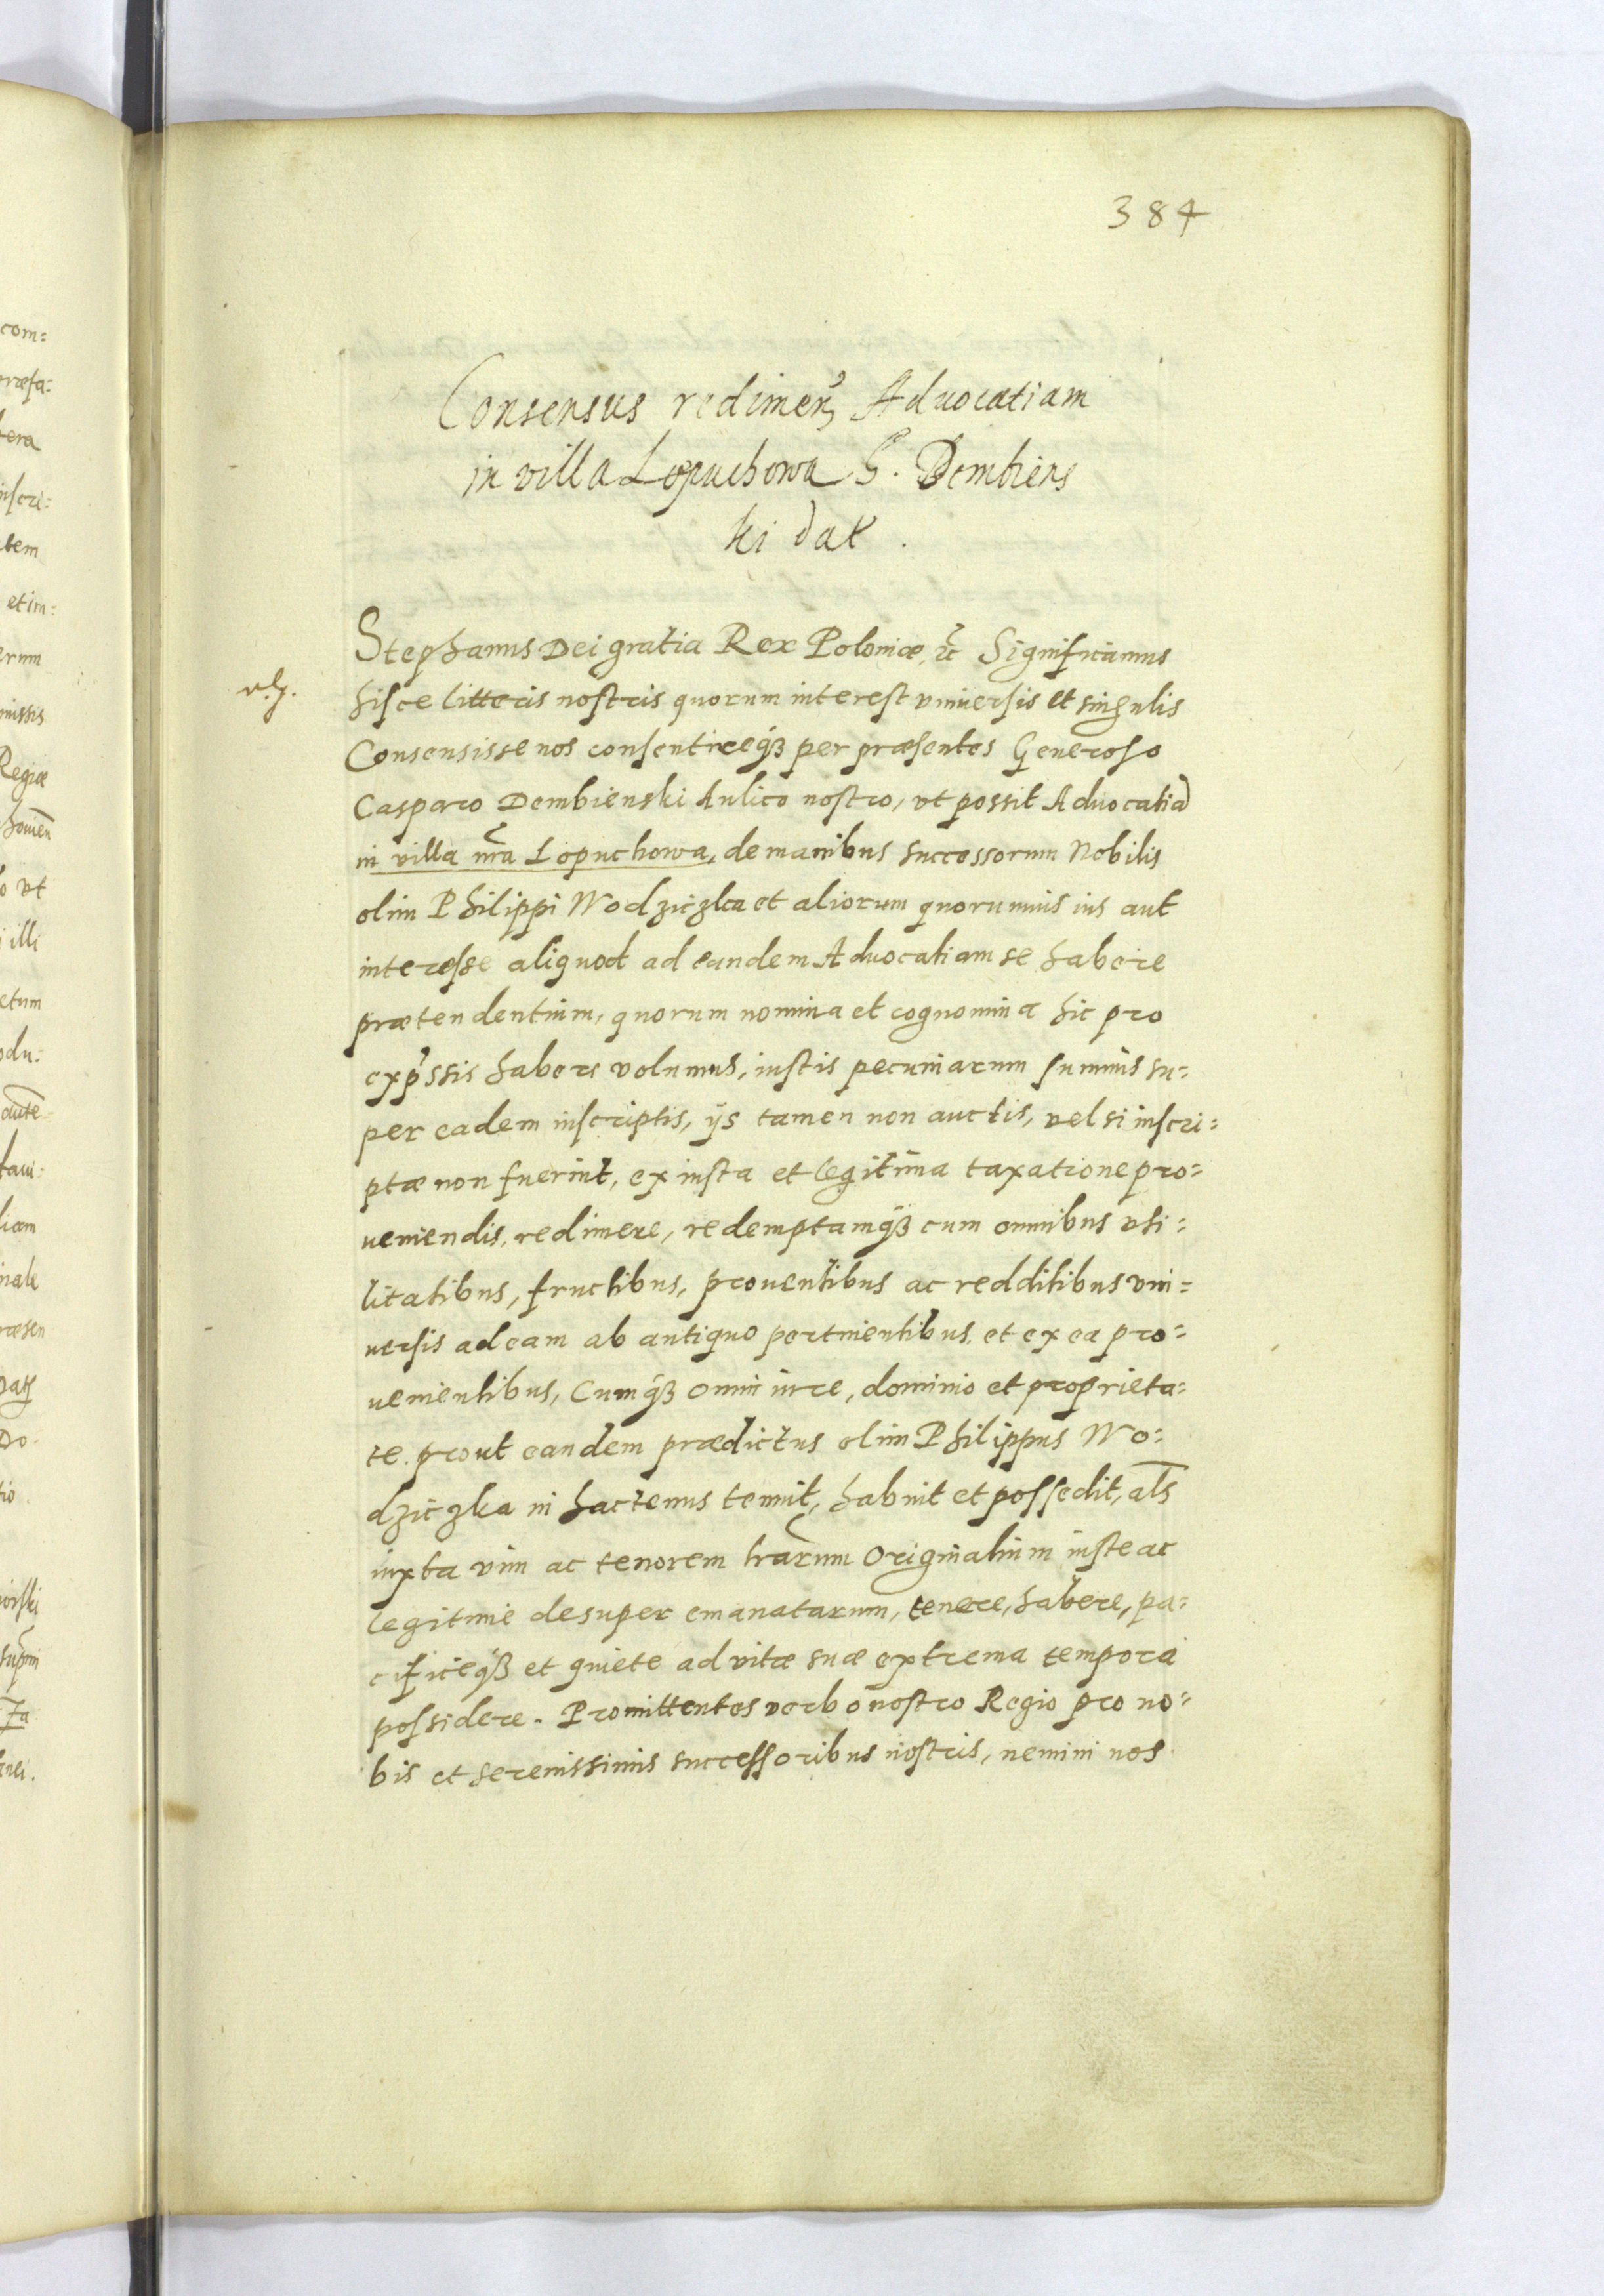 384
Consensus redimen̄ Aduocatiam
in villa Lopuchowa G. Dembiens
ki dat.
Stephanus Dei gratia Rex Poloniæ, &c Significamus
v.g.
hisce litteris nostris quorum interest vniuersis et singulis
Consensisse nos consentireq́ꝫ per præsentes Generoso
Casparo Dembienski Aulico nostro, vt possit Aduocatiā
in villa nr̄a Lopuchowa, de manibus successorum Nobilis
olim Philippi Wodziczka et aliorum quorumuis ius aut
interesse aliquod ad eandem Aduocatiam se habere
prætendentium, quorum nomina et cognomina hic pro
exp̄ssis habere volumus, iustis pecuniarum summis su=
per eadem inscriptis, ijs tamen non auctis, vel si inscri=
ptæ non fuerint, ex iusta et legitima taxatione pro=
ueniendis, redimere, redemptamq́ꝫ cum omnibus vti=
litatibus, fructibus, prouentibus ac redditibus vni=
uersis ad eam ab antiquo pertinentibus, et ex ea pro=
uenientibus, Cumq́ꝫ omni iure, dominio et proprieta=
te. prout eandem prædictus olim Philippus Wo=
dziczka in hactenus tenuit, habuit et possedit, als̄
iuxta vim ac tenorem lr̄arum Originalium iuste ac
legitime desuper emanatarum, tenere, habere, pa=
cificeq́ꝫ et quiete ad vitæ suæ extrema tempora
possidere. Promittentes verbo nostro Regio pro no=
bis et serenissimis successoribus nostris, nemini nos
com=
præfa:
inscri=
etim=
Regiæ
vt
illi